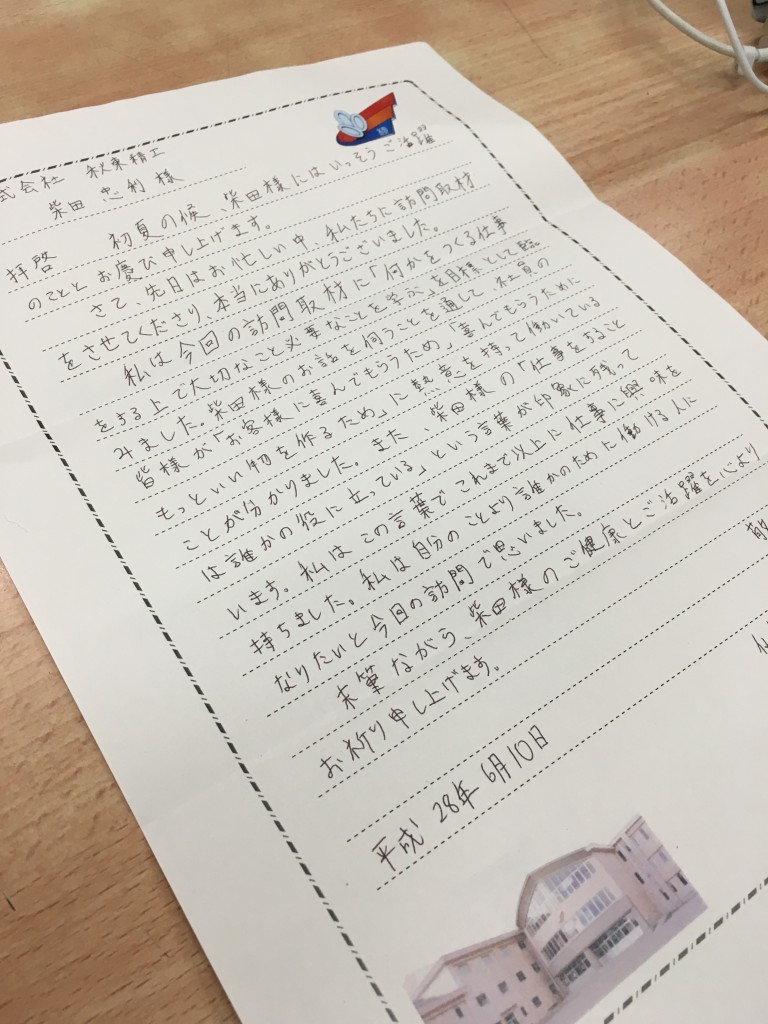 式会社 秋東精工
柴田 忠利 様
拝啓 初夏の候、柴田様にはいっそうご活躍
のことと お慶び申し上げます。
さて、先日はお忙しい中、私たちに訪問取材
をさせてくださり、本当にありがとうございました。
私は今回の訪問取材に「何かをつくる仕事
をする上で大切なこと必要なことを学ぶ」を目標として臨
みました。柴田様のお話を伺うことを通して、社員の
皆様が「お客様に喜んでもらうため」「喜んでもらうために
もっといい物を作るため」に熱意を持って働いている
ことが分かりました。また 柴田様の「仕事をすること
は誰かの役に立っている」という言葉が印象に残って
います。私はこの言葉でこれまで以上に仕事に興味を
持ちました。私は自分のことより誰かのために働ける人に
なりたいと今回の訪問で思いました。
末筆ながら、柴田様のご健康とご活躍を心より
お祈り申し上げます。
平成28年6月10日